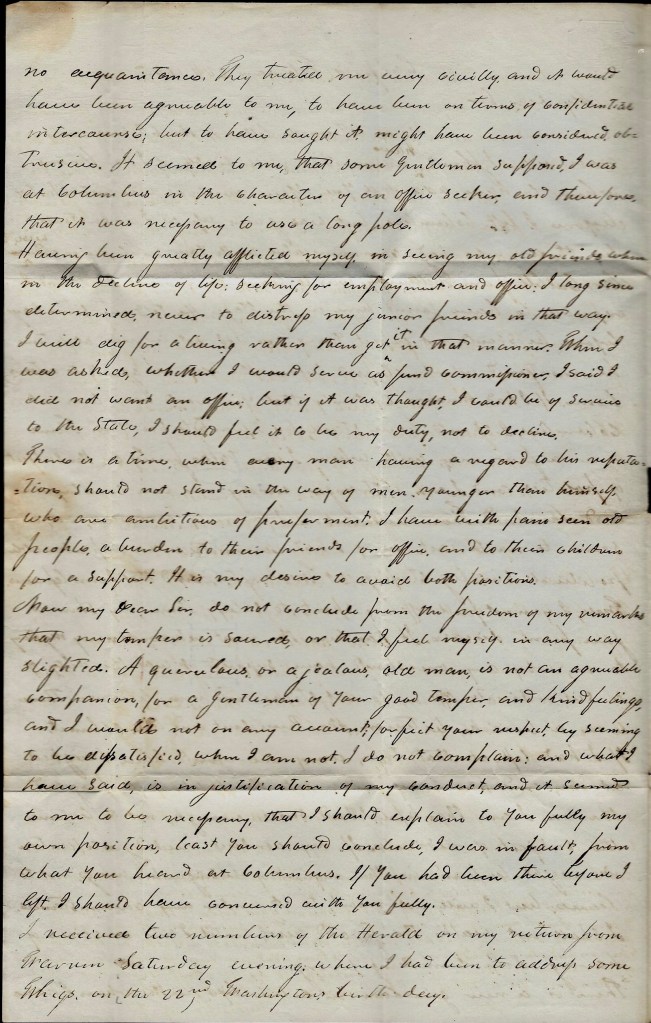 no acquaintances. They treated me very civilly, and it would
have been agreeable to me, to have been on terms of confidential
intercourse; but to have saught it, might have been considered, ob-
trusive. It seemed to me, that some gentlemen supposed, I was
at Columbus in the character of an office seeker, and therefore,
that it was necessary to use a long pole.
Having been greatly afflicted myself, in seeing my old friends, when
in the decline of life; seeking for employment and office; I long since
determined, never to distress my junior friends in that way.
I will dig for a living rather than get it in that manner. When I
was asked, whether I would serve as fund commissioner, I said I
did not want an office; but if it was thought, I could be of service
to the State, I should feel it to be my duty, not to decline.
There is a time, when every man having a regard to his reputa-
-tion, should not stand in the way of men, younger than himself,
who are ambitious of preferment. I have with pain seen old
people, a burden to their friends for office, and to their children
for a support. It is my desire to avoid both positions.
Now my Dear Sir, do not conclude from the freedom of my remarks
that my temper is soured, or that I feel myself in any way
slighted. A querulous, or a jealous, old man, is not an agreeable
companion, for a Gentleman of your good temper, and kind feelings,
and I would not on any account, forfeit your respect, by seeming
to be dissatisfied, when I am not. I do not complain; and what I
have said, is in justification of my conduct, and it seemed
to me to be necessary, that I should explain to You fully my
own position, least You should conclude, I was in fault, from
what You heard at Columbus. If You had been there before I
left, I should have conversed with You fully.
I received two numbers of the Herald on my return from
Warren Saturday evening, where I had been to address some
Whigs, on the 22nd, Washingtons birth day.